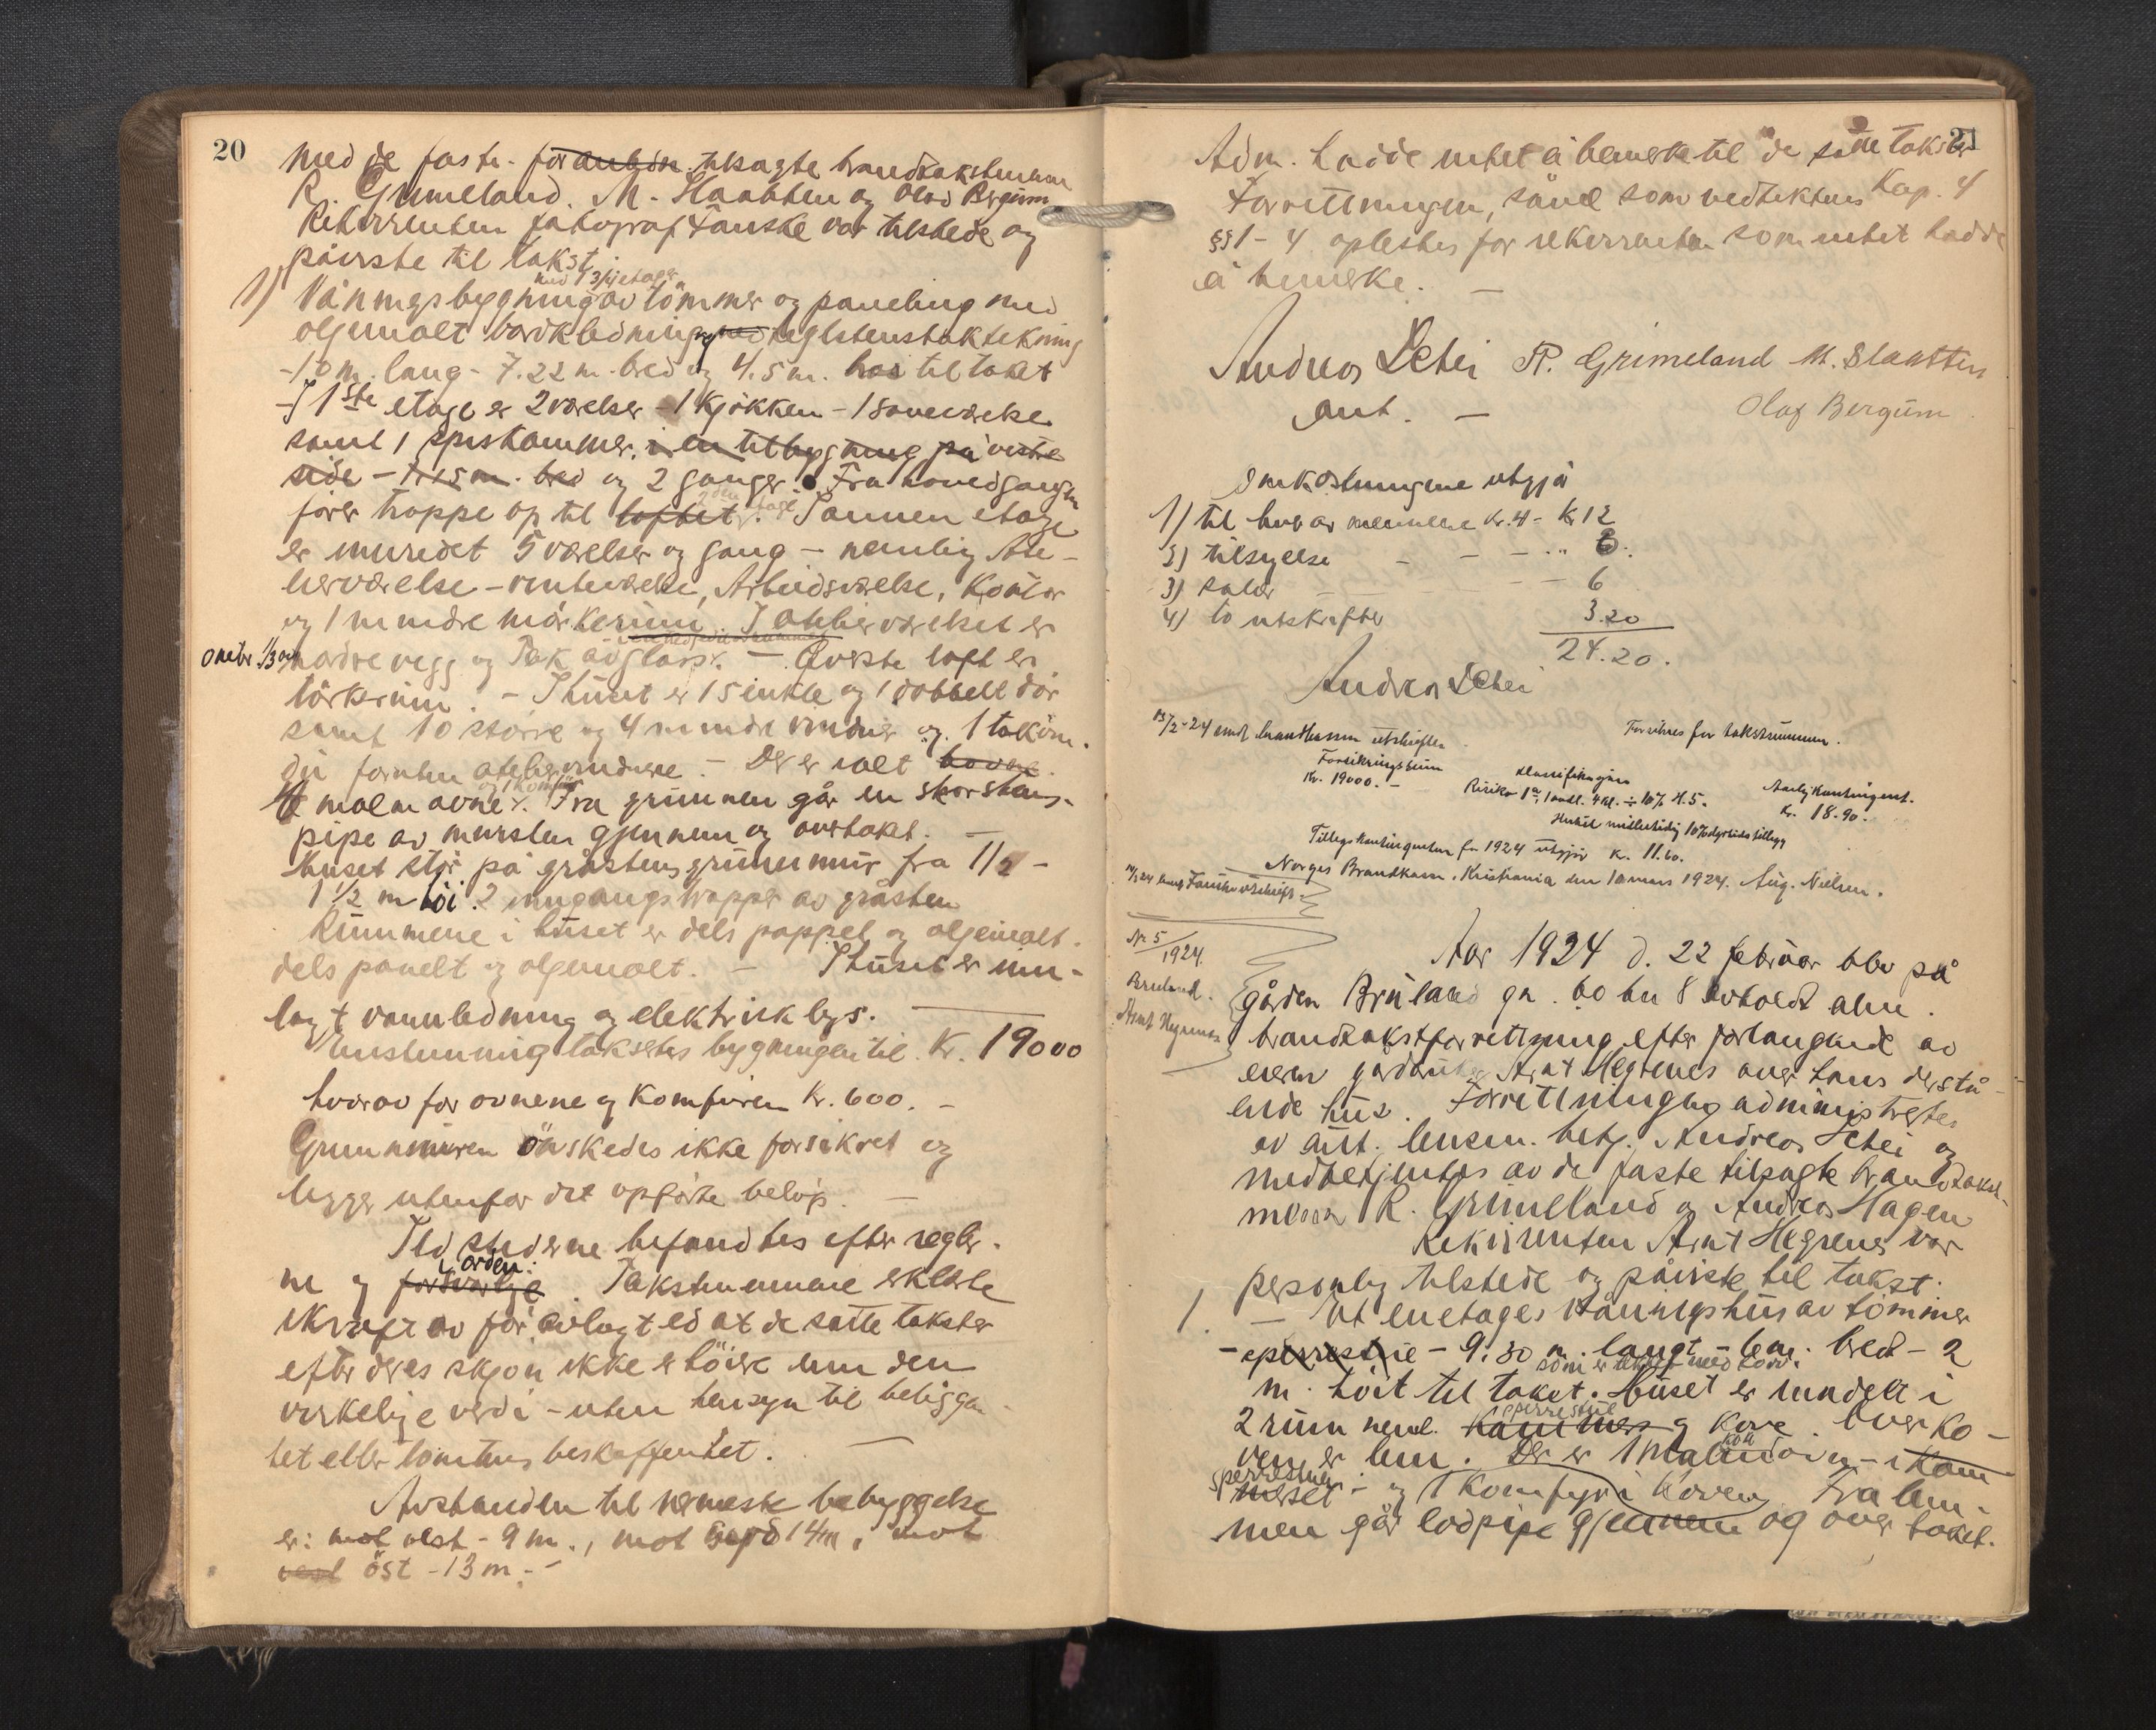 20
med de faste. tilsagte brandtakstmenn
R. Grimeland. M. Slaatten og Olav Bergum
Rekvirenten fotograf Fanske var tilstede og
påviste til takst.
med 3/4 etage
1) Våningsbygning av tömmer og paneling med
oljemalt bordkledning og teglstenstaktekning
-10 m. lang - 7.22 m. bred og 4.5 m. höi til taket
- I 1ste etage er 2 værelser - 1 kjökken - 1 soveværelse
samt 1 spiskammer. i en tilbygning på vestre
side - bred og 2 ganger. Fra hovedgangen
förer trappe op til loftet. 2den etage I annen etage
er innredet 5 værelser og gang - nemlig Ate-
lierværelse - venteværelse, Arbeidsværelse, Kontor
og 1 mindre mörkerum. I atelierværelset er
nordre vegg og Tak av glass. - Överste loft er
törkerum. - I huset er 15 enkle og 1 dobbelt dör
samt 10 större og 4 mindre vinduer og 1 takvin-
du foruten ateliervinduene. - Der er ialt
og 1 komfyr
4 malmovner. Fra grunnen går en skorstens-
pipe av mursten gjennem og over taket. -
Huset står på gråstens grunnmur fra 1/2 -
1 1/2 m höi. 2 inngangstrapper av gråsten
Rummene i huset er dels pappet og oljemalt.
dels panelt og oljemalt. - I huset er inn-
lagt vannledning og elektrisk lys.
Enstemmig taksertes bygningen til Kr. 19000
hvorav for ovnene og Komfyren Kr. 600. -
Grunnmuren önskedes ikke forsikret og
ligger utenfor det opförte belöp. -
Ildstederne befandtes efter regler-
i orden.
ne og forsvarlige. Takstmennene erklærte
i kraft av för avlagt ed at de satte takster
efter deres skjön ikke er höiere enn den
virkelige verdi - uten hensyn til beliggen-
het eller tomtens beskaffenhet. -
Avstanden til nærmeste bebyggelse
er: mot vest - 9 m., mot syd 14 m, mot
vest öst - 13 m. -
21
Adm. hadde intet å bemerke til de satte takster
Forretningen, såvel som vedtektens Kap. 4
§§ 1 - 4 oplestes for rekvirenten som intet hadde
å bemerke. -
Andreas Lehei R. Grimeland M. Slaatten
aut. - Olaf Bergum
Omkostningene utgjör
1) til hver av mennene kr. 4 - Kr 12
2) tilsyelse - - - .. 3.
3) salær - - - 6
4) to utskrifter 3.20
24.20.
Andreas Lehei
13/2-24 sendt brandkassen utskriften
Forsikres for takstsummen.
Forsikringssum Klassifikasjon Aarlig Kontingent.
Kr. 19000. - Risiko 1a, landt. 4 kl. ÷ 10% H. 5. Kr. 18.90.
Hertil midlertidig 10% dyrtidstillegg
Tillegskontingenten for 1924 utgjör Kr. 11.60.
Norges Brandkasse, Kristiania den 10 mars 1924. Aug. Nielsen.
Nr 5
1924.
Bruland.
Arnt Hegrenes
Aar 1924 d. 22 februar blev på
gården Bruland gn. 60 bn 8 avholdt alm.
brandtakstforretning efter forlangende av
eieren gårdbruker Arnt Hegrenes over hans derstå-
ende hus. Forretningen administrertes
av aut. lensm. betj. Andreas Lehei og
medbetjentes av de faste tilsagte brandtakst-
menn R. Grimeland og Andreas Hagen
Rekvirenten Arnt Hegrenes var
personlig tilstede og påviste til takst.
1. - Et enetages våningshus av tömmer
- 9.30 m. langt - 6 m. bred - 2
som er tekket med
m. höit til taket. Huset er inndelt i
sperrestue
2 rum neml. Kammer og Kove Over Ko-
ven er lem. Der er 1 malm ovn - i Kam
sperrestuen
merset - og 1 Komfyr i Koven. Fra lem-
men går lodpipe gjennem og over taket.